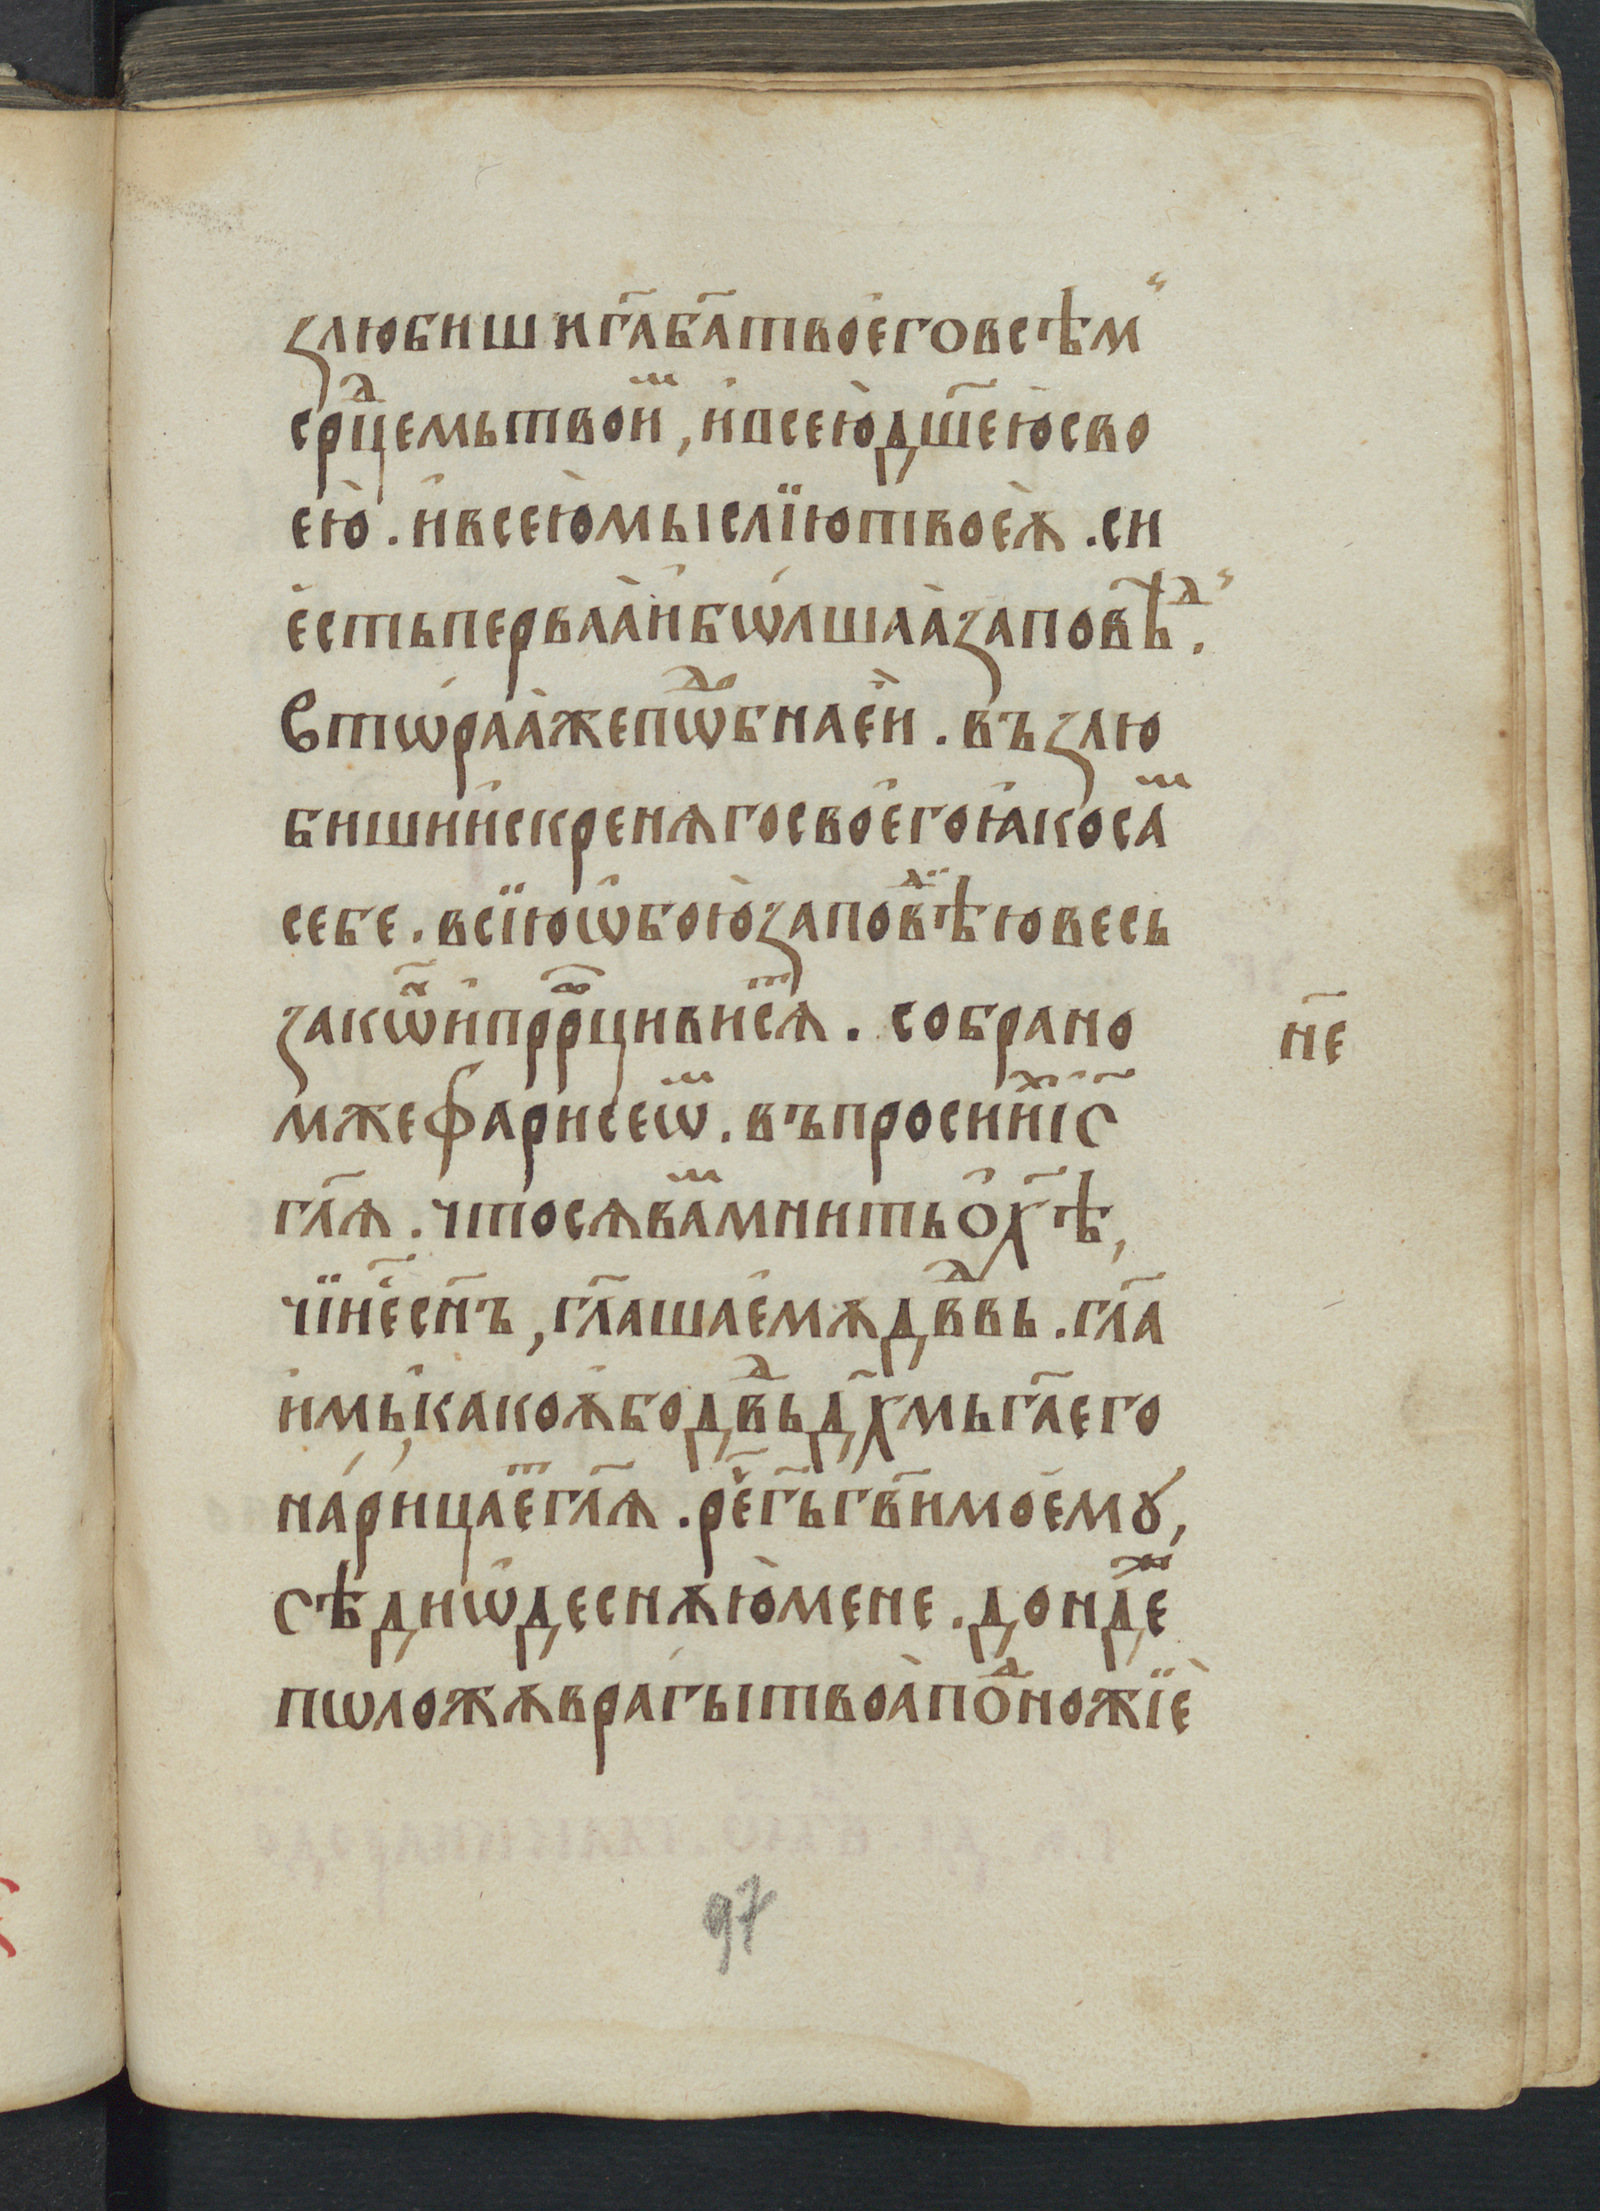 злюбиши га҃ ба҃ твое̑го всѣм
срⷣцемь твоиⷨ, и҆ всею̀ дш҃ею̀ сво
ею̀. и҆ всею̀ мыслїю твоеѧ̀. си
е҆сть перваа̀ и҆ бѡ́лшаа̀ заповѣⷣ.
втѡ́раа̀ же пѡⷣбна е҆и. възлю
биши и҆скренѧго свое̑го ꙗ҆ко саⷨ
себе. в сїю ѡ҆бою̀ заповⷣѣю весь
закѡⷩ҇ и҆ прⷪ҇рци висѧⷮ. собрано
мже фарисеѡⷨ. въпроси иⷯ і҃с
гл҃ѧ. что сѧ ваⷨ мнить о҆ хѣ҃,
чїи е҆ сн҃ъ, гл҃ашае̑мѧ дв҃двь. гл҃а
и҆мь, како ѧ҆бо дв҃дь дх҃мь гл҃а его
на́рицаеⷮ гл҃ѧ. ре҆ гь҃ гв҃и мое̑мꙋ,
сѣди ѡ҆деснѫю̀ мене. дондеⷤ
пѡложѫ враги́ твоа̀ поⷣножїѐ
не҃
97